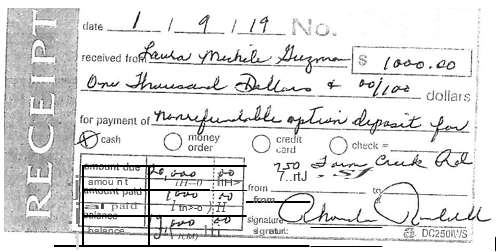 RECEIPT
date 1/9/19 No.
received from Laura Michele Guzman $ 1000.00
One Thousand Dollars & 00/100 dollars
for payment of nonrefundable option deposit for
cash money order credit card check =
750 Town Creek Rd
amount due 20,000 00
amount from to
amount paid 1000 00
paid from
balance 19,000 00
balance signature
DC2501I/S